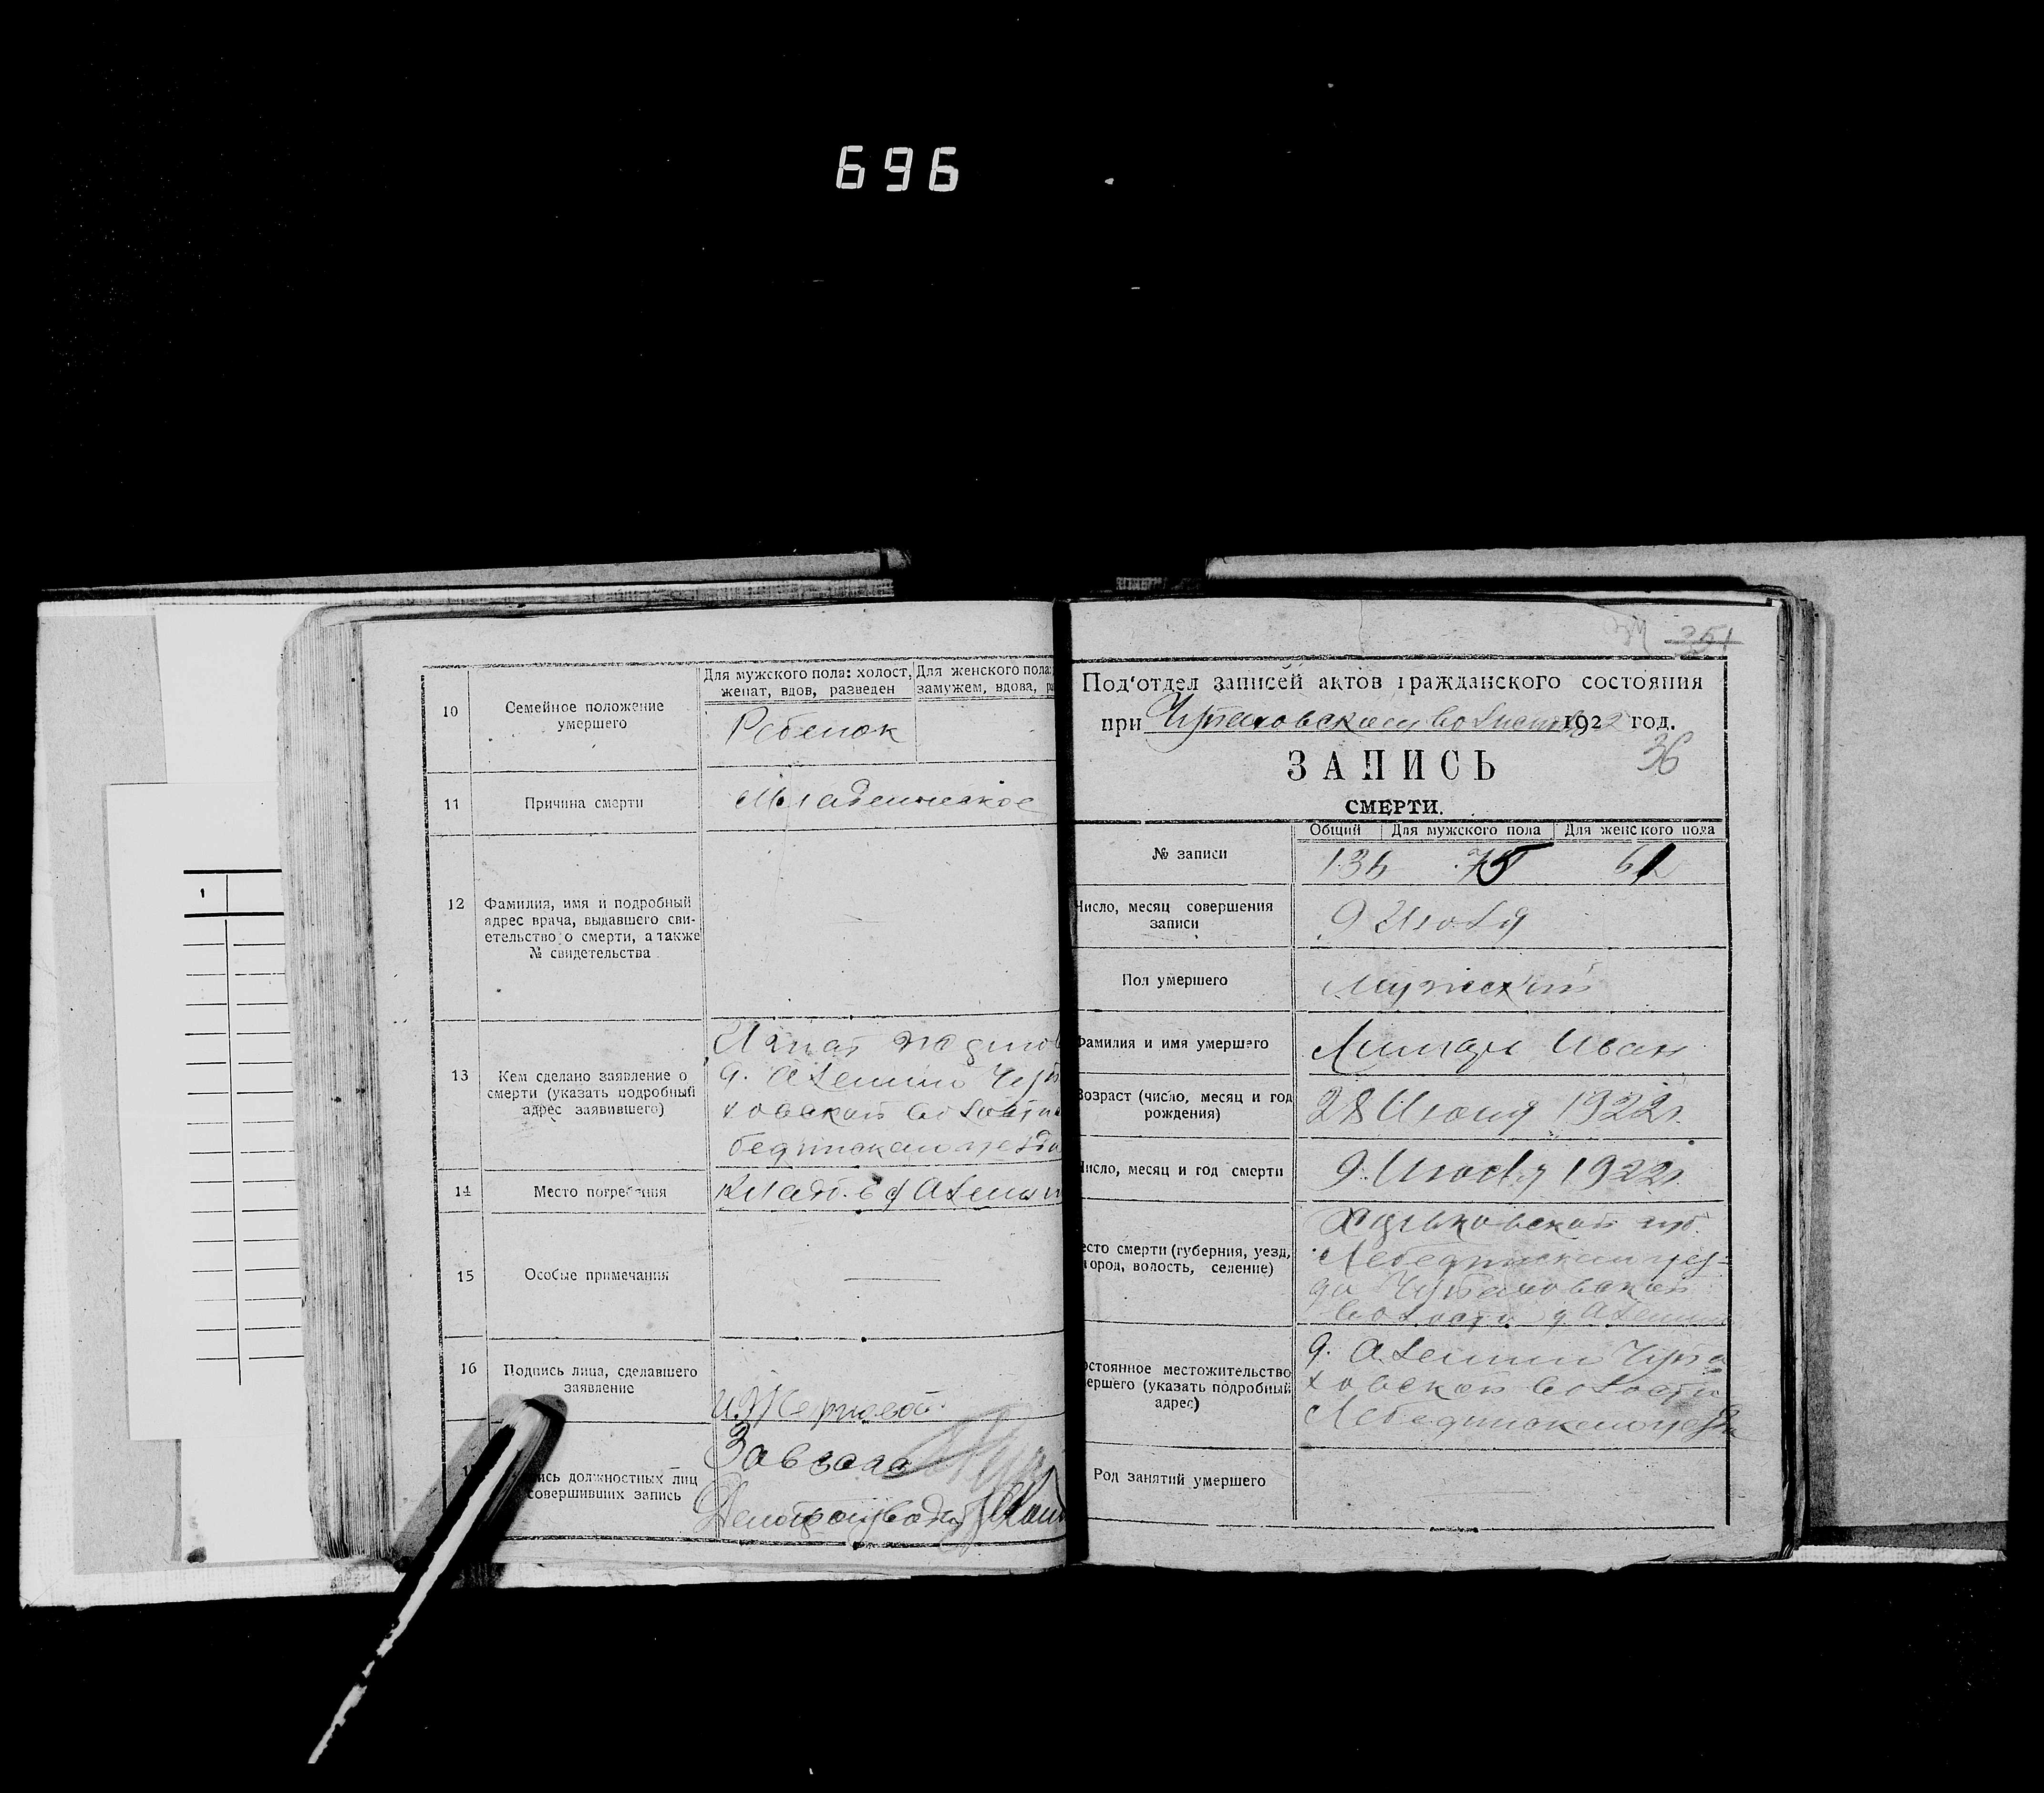 696
10
Семейное положение
умершего
Для мужского пола: холост,
женат, вдов, разведен
Для женского пола:
замужем, вдова, ра
Ребенок
11
Причина смерти
Младенческое
12
Фамилия, имя и подробный
адрес врача, выдавшего сви-
етельство о смерти, а также
№ свидетельства
13
Кем сделано заявление о
смерти (указать подробный
адрес заявившего)
Игнат
ховской волости
14
Место погребения
Клад. в д Аленин
15
Особые примечания
16
Подпись лица, сделавшего
заявление
ись должностных лиц
совершивших запись
Завзаго
Делопроизводит
351
Под'отдел записей актов гражданского состояния
при 1922 год.
36
ЗАПИСЬ
СМЕРТИ.
№ записи
Общий
Для мужского пола
Для женского пола
136 75 61
Число, месяц совершения
записи
9 Июля
Пол умершего
Мужской
Фамилия и имя умершего
Лимарь Иван
Возраст (число, месяц и год
рождения)
28 Июня 1922г.
Число, месяц и год смерти
9 Июля 1922г.
есто смерти (губерния, уезд,
город, волость, селение)
Харьковской губ.
Лебединского уез-
да
волости д Аленин
остоянное местожительство
ершего (указать подробный
адрес)
д. Аленин
ховской волости
Лебединского уезда
Род занятий умершего